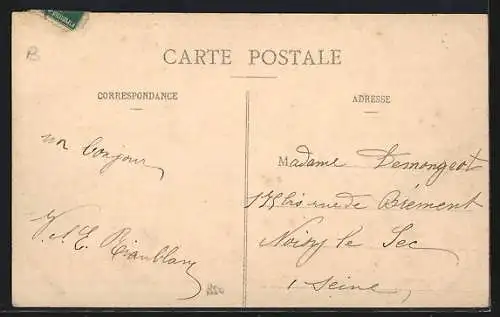 B
CARTE POSTALE
CORRESPONDANCE
un bonjour
V. et E. Rimblanc
ADRESSE
Madame Demongeot
175 bis rue de Brément
Noisy le Sec
Seine